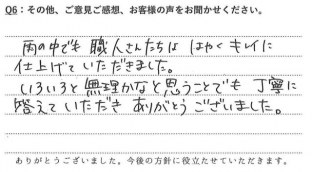 Q6：その他、ご意見ご感想、お客様の声をお聞かせください。
雨の中でも 職人さんたちは はやく キレイに
仕上げて いただきました。
いろいろと 無理かなと思うことでも 丁寧に
答えて いただき ありがとう ございました。
ありがとうございました。今後の方針に役立たせていただきます。